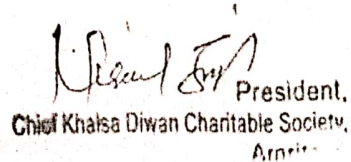 President,
Chief Khalsa Diwan Charitable Society,